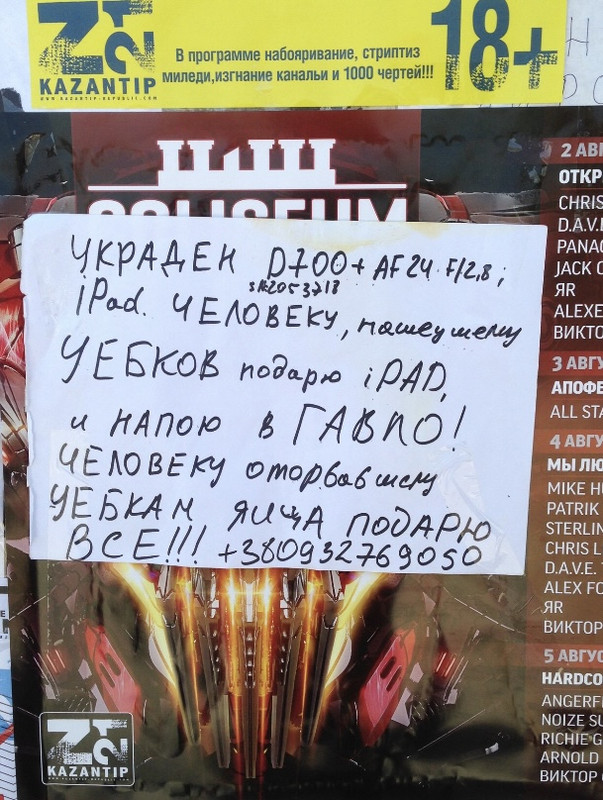 Z21
KAZANTIP
WWW.KAZANTIP-REPUBLIC.COM
В программе набояривание, стриптиз
миледи,изгнание канальи и 1000 чертей!!!
18+
COLISEUM
УКРАДЕН D700 + AF 24 F/2,8;
SN2053718
iPad. ЧЕЛОВЕКУ, нашеушему
УЕБКОВ подарю iPAD,
и НАПОЮ в ГАВНО!
ЧЕЛОВЕКУ оторвавшему
УЕБКАМ ЯИЦА ПОДАРЮ
ВСЕ!!! +380932769050
2 АВГ
ОТКР
CHRIS
D.A.V.E
PANAC
JACK C
ЯR
ALEXE
ВИКТО
3 АВГУ
АПОФЕ
ALL STA
4 АВГУ
МЫ ЛЮ
MIKE HU
PATRIK
STERLIN
CHRIS L
D.A.V.E. T
ALEX FO
ЯR
ВИКТОР
5 АВГУС
HARDCO
ANGERFI
NOIZE SU
RICHIE G
ARNOLD
ВИКТОР С
Z21
KAZANTIP